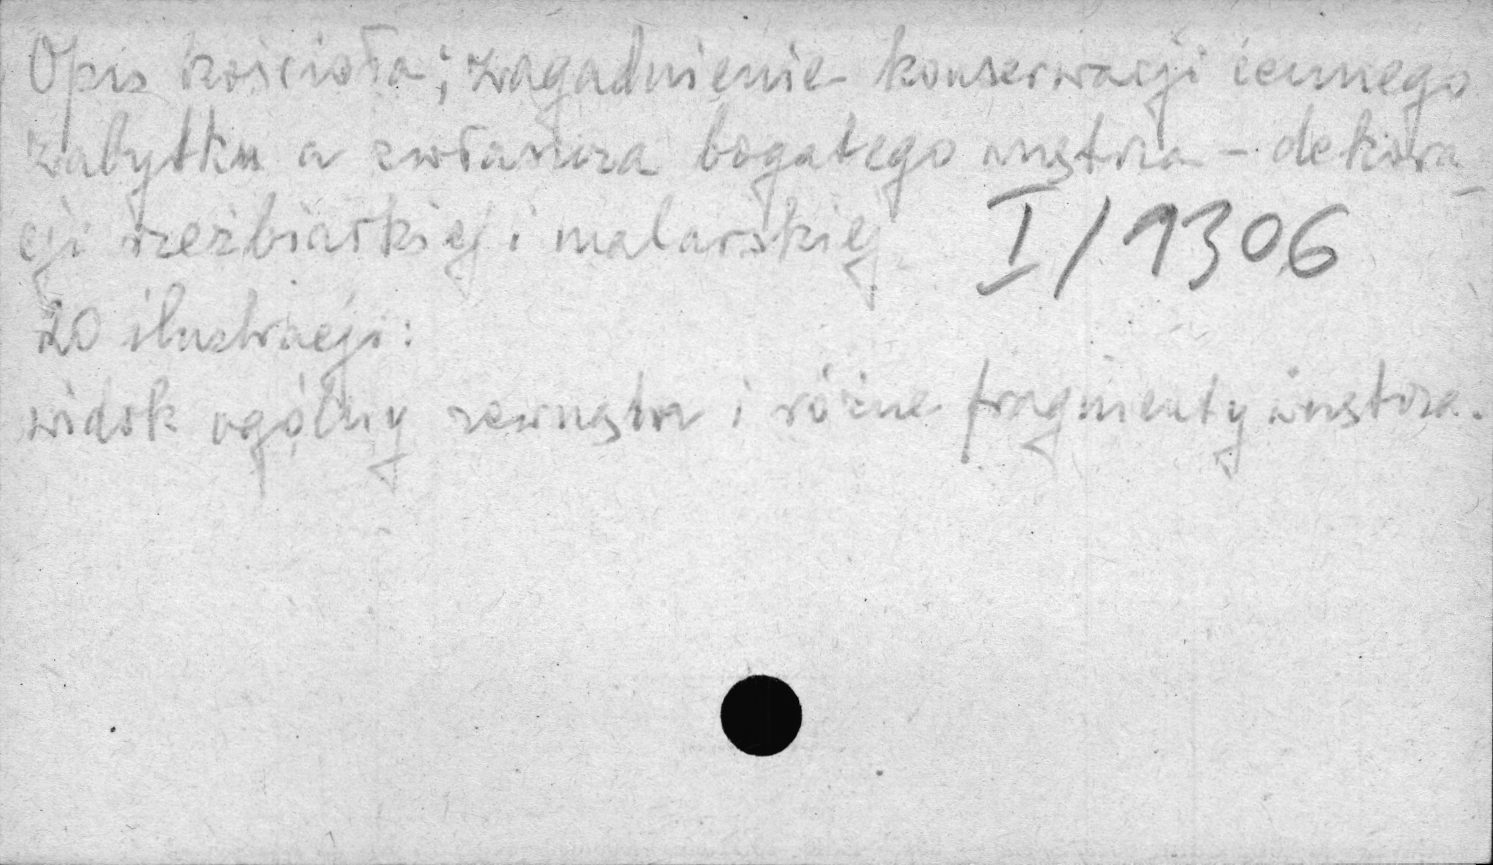 Opis kościoła; zagadnienie konserwacji cennego
zabytku a zwłaszcza bogatego wnętrza - dekora-
cji rzeźbiarskiej i malarskiej I/1306
20 ilustracji:
widok ogólny zewnątrz i różne fragmenty wnętrza.